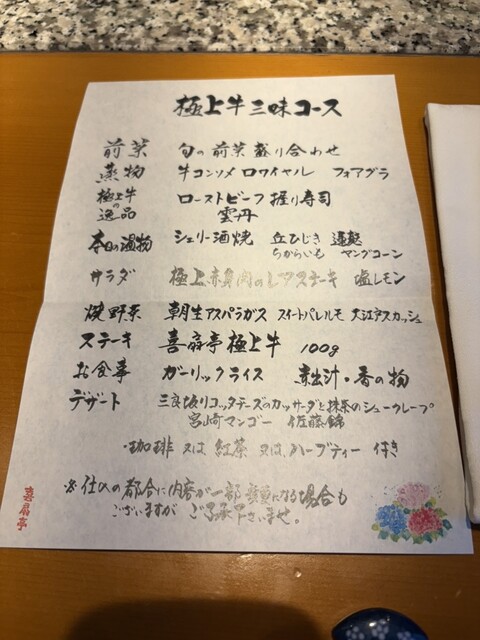 極上牛三昧コース
前菜 旬の前菜盛り合わせ
蒸物 牛コンソメロワイヤル フォアグラ
極上牛の逸品 ローストビーフ握り寿司
雲丹
本日の温物 シェリー酒焼 丘ひじき 蓮麩
ちからいも ヤングコーン
サラダ 極上赤身肉のレアステーキ 塩レモン
焼野菜 朝生アスパラガス スイートパレルモ 大江戸スカッシュ
ステーキ 喜扇亭極上牛 100g
お食事 ガーリックライス 赤出汁・香の物
デザート 三良坂リコッタチーズのカッサータと抹茶のシュークレープ
宮崎マンゴー 佐藤錦
・珈琲 又は 紅茶 又は、ハーブティー 付き
※仕入の都合に内容が一部変更になる場合も
ございますが ご了承下さいませ。
喜扇亭